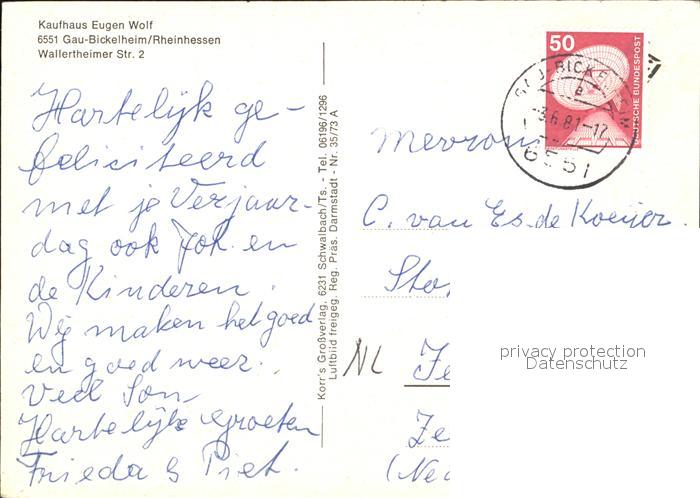 Kaufhaus Eugen Wolf
6551 Gau-Bickelheim/Rheinhessen
Wallertheimer Str. 2
Hartelijk ge-
feliciteerd
met je Verjaar-
dag ook Jok en
de Kinderen.
Wij maken het goed
en goed weer.
Veel Son
Hartelijke Groeten
Frieda & Piet.
Korr's Großverlag, 6231 Schwalbach/Ts. - Tel. 06196/1296
Luftbild freigeg. Reg. Präs. Darmstadt - Nr. 35/73 A
50
DEUTSCHE BUNDESPOST
GAU-BICKELHEIM
e
-3.6.81-17
6551
Mevrouw
C. van Es. de Koeijer.
Sto
NL Je
Ze
(Ne
privacy protection
Datenschutz